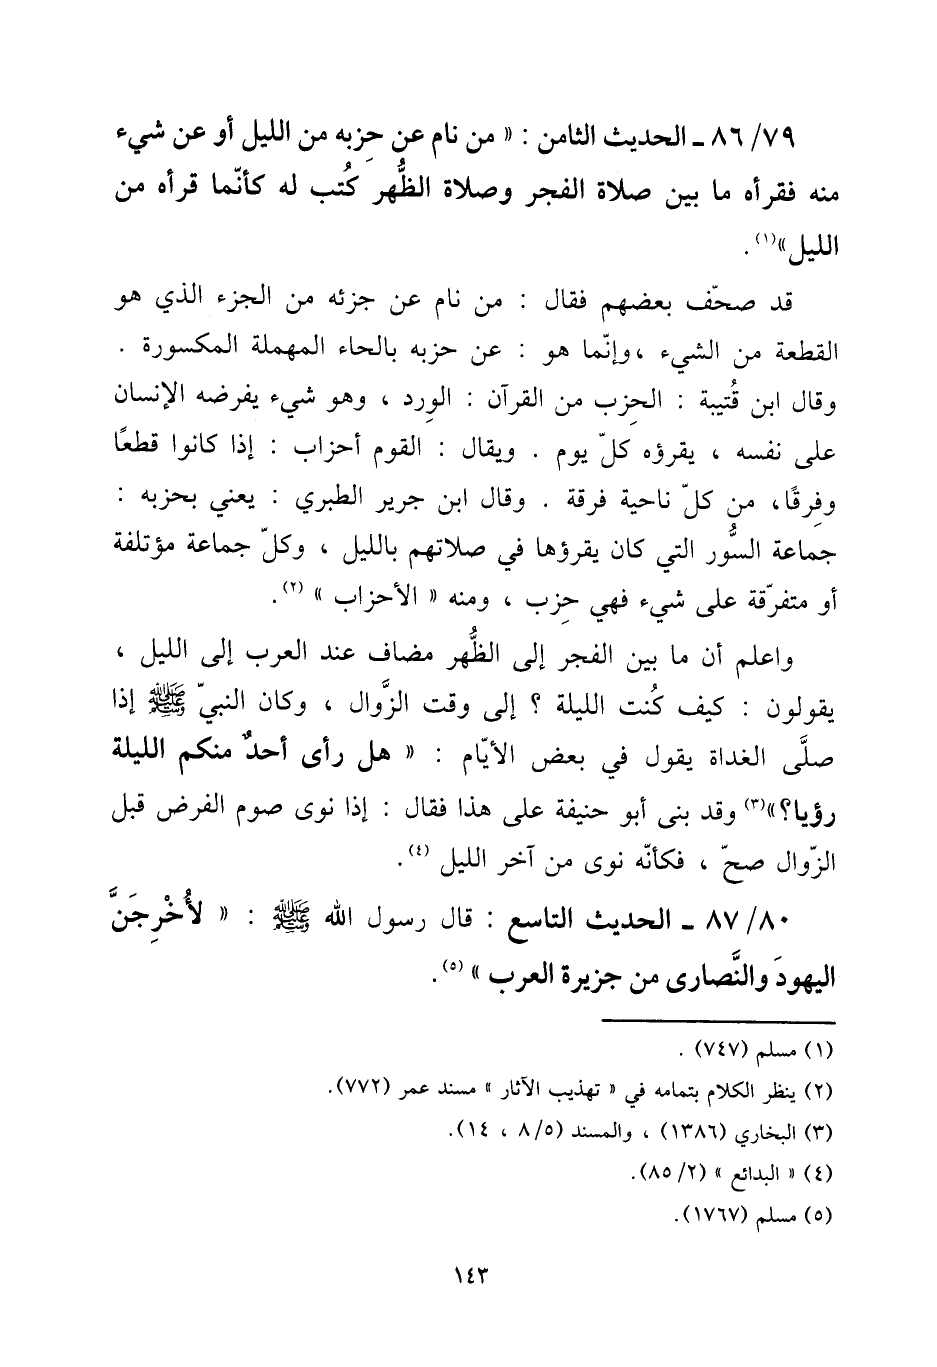 ٨٦/٧٩ ـ الحديث الثامن : « من نام عن حِزبه من الليل أو عن شيء
منه فقرأه ما بين صلاة الفجر وصلاة الظُّهر كُتب له كأنّما قرأه من
الليل»(١).
قد صحّف بعضهم فقال : من نام عن جزئه من الجزء الذي هو
القطعة من الشيء ،وإنّما هو : عن حزبه بالحاء المهملة المكسورة .
وقال ابن قُتيبة : الحِزب من القرآن : الوِرد ، وهو شيء يفرضه الإنسان
على نفسه ، يقرؤه كلّ يوم . ويقال : القوم أحزاب : إذا كانوا قطعًا
وفِرقًا، من كلّ ناحية فرقة . وقال ابن جرير الطبري : يعني بحزبه :
جماعة السُّور التي كان يقرؤها في صلاتهم بالليل ، وكلّ جماعة مؤتلفة
أو متفرّقة على شيء فهي حِزب ، ومنه « الأحزاب » (٢).
واعلم أن ما بين الفجر إلى الظُّهر مضاف عند العرب إلى الليل ،
يقولون : كيف كُنت الليلة ؟ إلى وقت الزَّوال ، وكان النبيّ ﷺ إذا
صلَّى الغداة يقول في بعض الأيّام : « هل رأى أحدٌ منكم الليلة
رؤيا؟»(٣) وقد بنى أبو حنيفة على هذا فقال : إذا نوى صوم الفرض قبل
الزّوال صحّ ، فكأنّه نوى من آخر الليل (٤).
٨٧/٨٠ ـ الحديث التاسع : قال رسول الله ﷺ : « لأُخْرِجَنَّ
اليهودَ والنَّصارى من جزيرة العرب » (٥).
(١) مسلم (٧٤٧) .
(٢) ينظر الكلام بتمامه في « تهذيب الآثار » مسند عمر (٧٧٢).
(٣) البخاري (١٣٨٦) ، والمسند (٨/٥ ، ١٤).
(٤) « البدائع » (٨٥/٢).
(٥) مسلم (١٧٦٧).
١٤٣